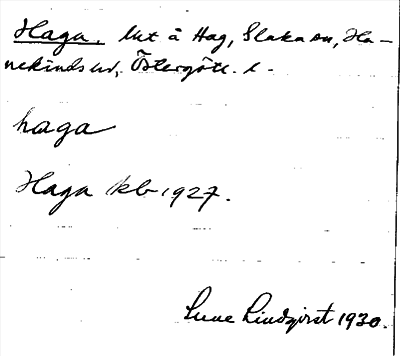 Haga. Ut å Hag, Slaka sn, Ha-
nekinds hd, Östergötl. l.
haga
Haga kb 1927.
Sune Lindqvist 1930.